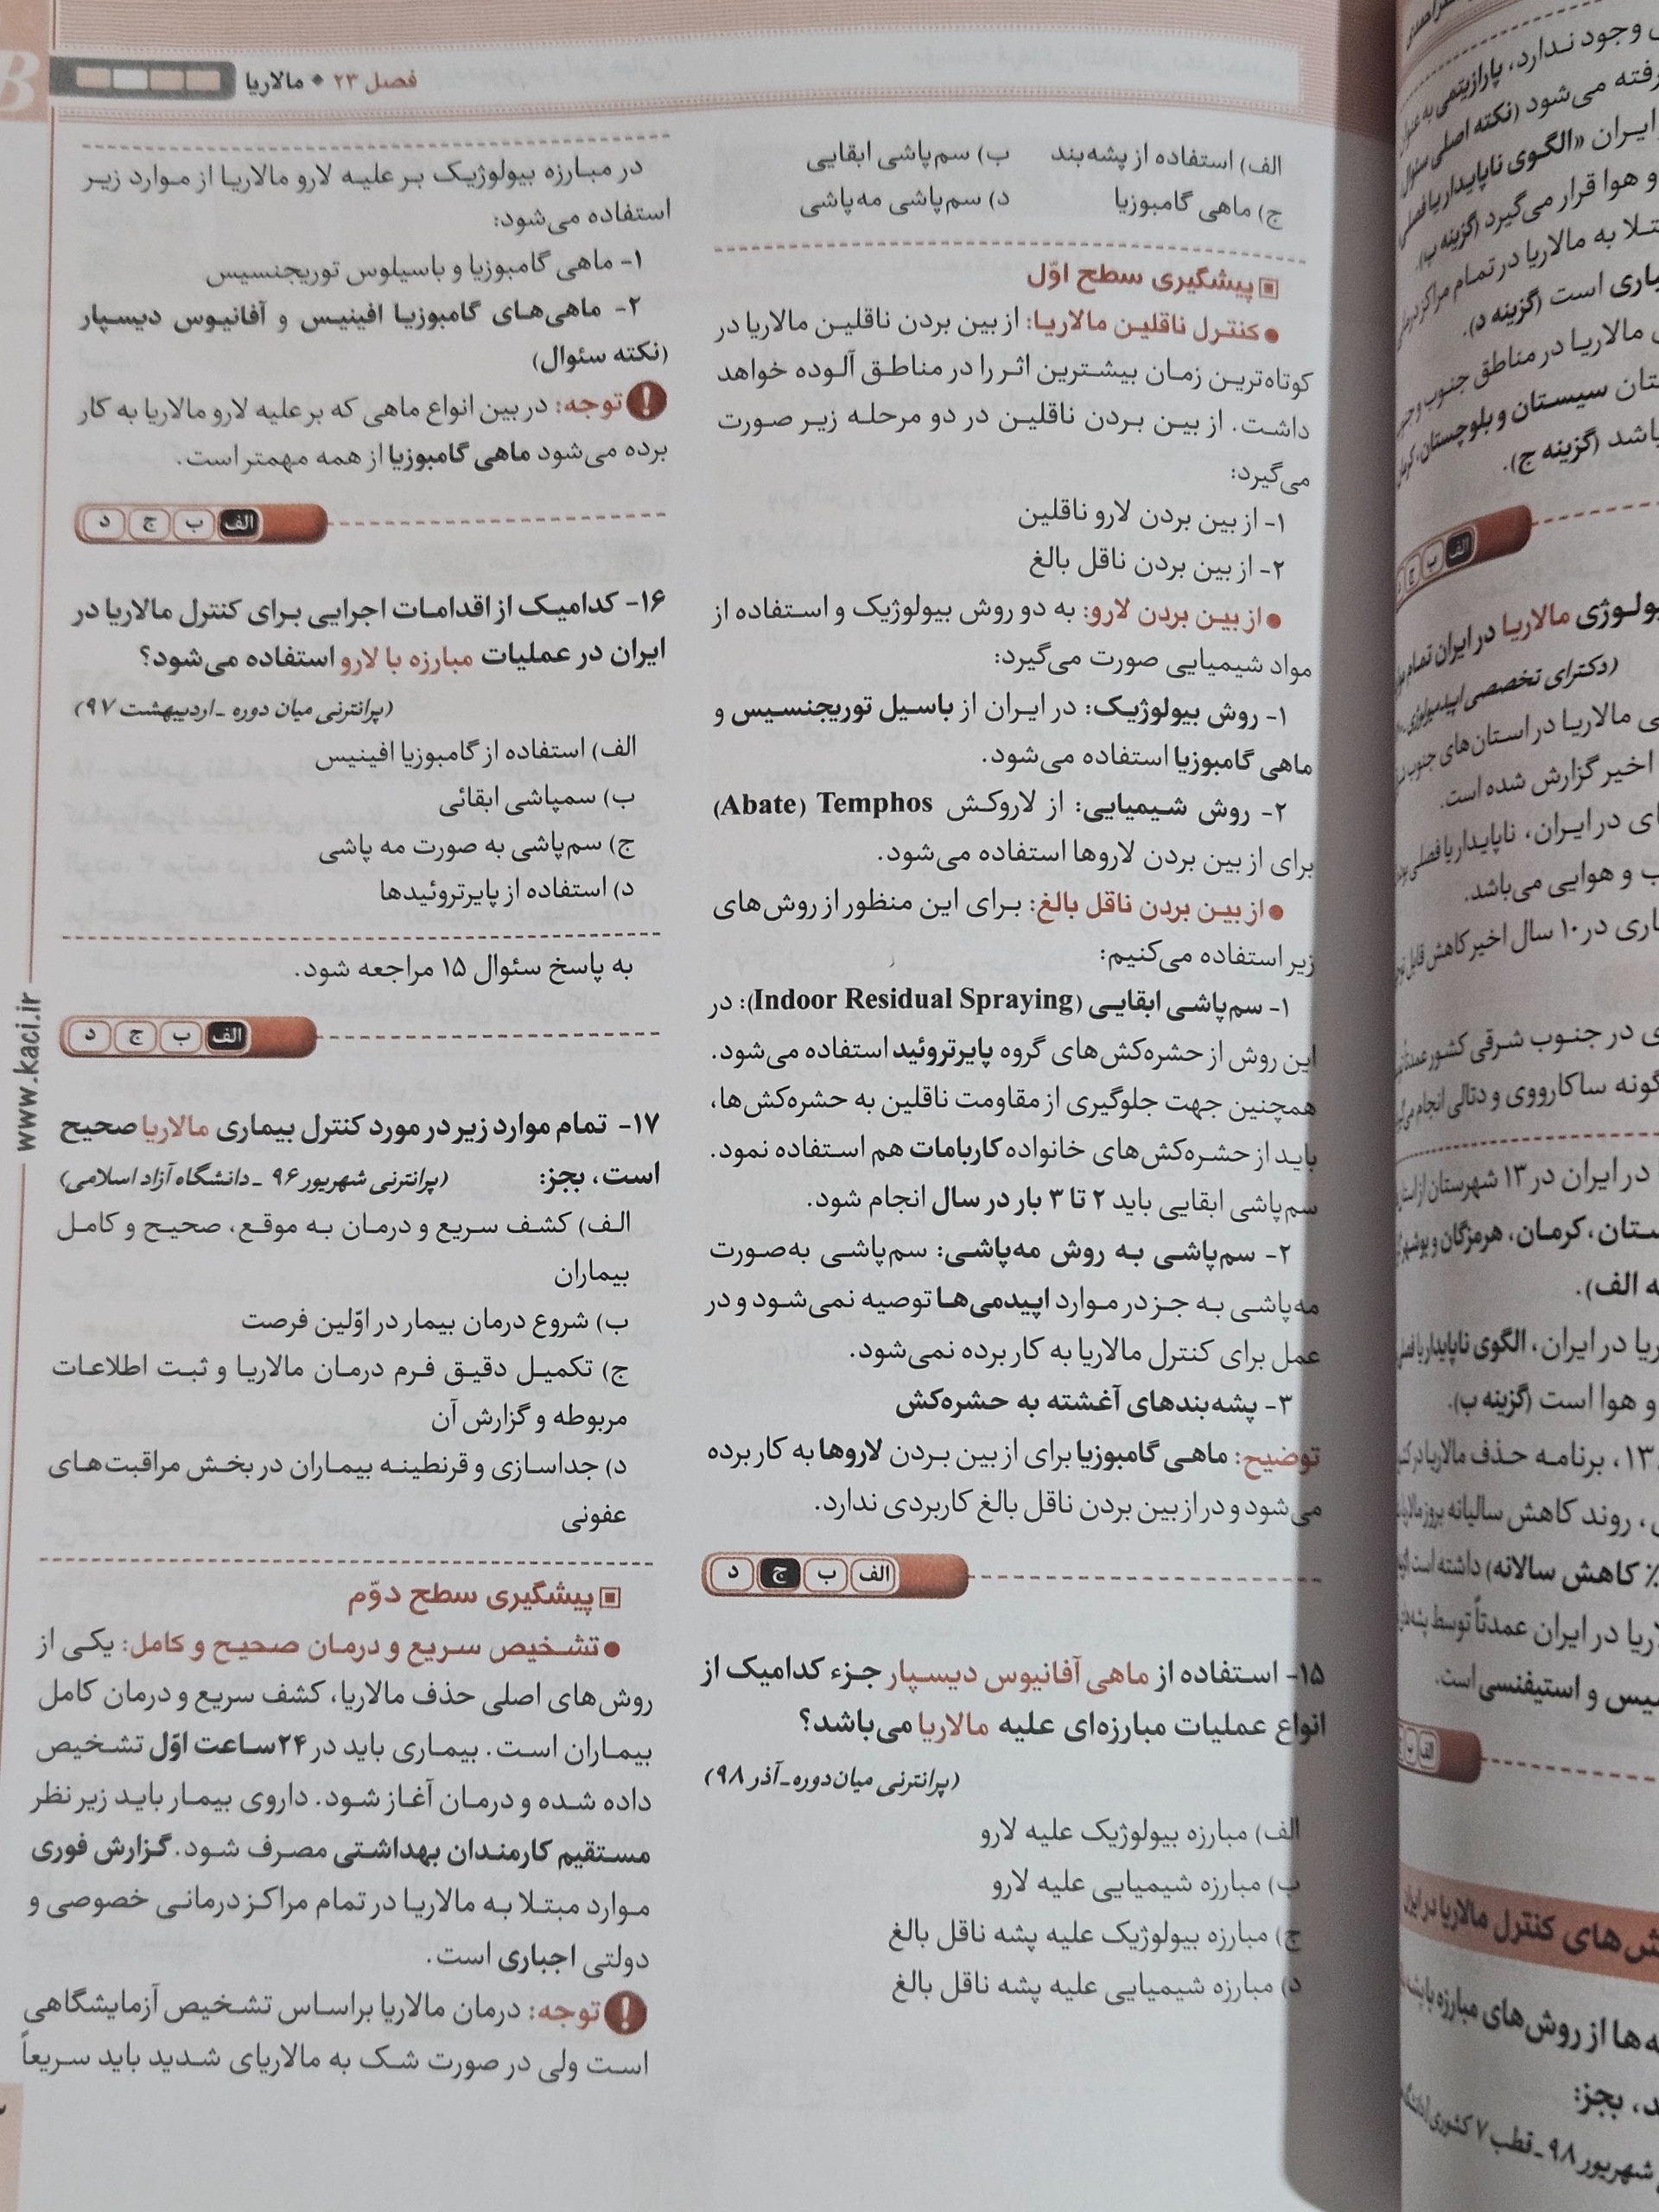 فصل ۲۳ • مالاریا
الف) استفاده از پشه‌بند ب) سم‌پاشی ابقایی
ج) ماهی گامبوزیا د) سم‌پاشی مه‌پاشی
پیشگیری سطح اوّل
● کنترل ناقلین مالاریا: از بین بردن ناقلین مالاریا در
کوتاه‌ترین زمان بیشترین اثر را در مناطق آلوده خواهد
داشت. از بین بردن ناقلین در دو مرحله زیر صورت
می‌گیرد:
۱- از بین بردن لارو ناقلین
۲- از بین بردن ناقل بالغ
● از بین بردن لارو: به دو روش بیولوژیک و استفاده از
مواد شیمیایی صورت می‌گیرد:
۱- روش بیولوژیک: در ایران از باسیل توریجنسیس و
ماهی گامبوزیا استفاده می‌شود.
۲- روش شیمیایی: از لاروکش Temphos (Abate)
برای از بین بردن لاروها استفاده می‌شود.
● از بین بردن ناقل بالغ: برای این منظور از روش‌های
زیر استفاده می‌کنیم:
۱- سم‌پاشی ابقایی (Indoor Residual Spraying): در
این روش از حشره‌کش‌های گروه پایرتروئید استفاده می‌شود.
همچنین جهت جلوگیری از مقاومت ناقلین به حشره‌کش‌ها،
باید از حشره‌کش‌های خانواده کاربامات هم استفاده نمود.
سم‌پاشی ابقایی باید ۲ تا ۳ بار در سال انجام شود.
۲- سم‌پاشی به روش مه‌پاشی: سم‌پاشی به‌صورت
مه‌پاشی به جز در موارد اپیدمی‌ها توصیه نمی‌شود و در
عمل برای کنترل مالاریا به کار برده نمی‌شود.
۳- پشه‌بندهای آغشته به حشره‌کش
توضیح: ماهی گامبوزیا برای از بین بردن لاروها به کار برده
می‌شود و در از بین بردن ناقل بالغ کاربردی ندارد.
الف ب ج د
۱۵- استفاده از ماهی آفانیوس دیسپار جزء کدامیک از
انواع عملیات مبارزه‌ای علیه مالاریا می‌باشد؟
(پرانترنی میان‌دوره ـ آذر ۹۸)
الف) مبارزه بیولوژیک علیه لارو
ب) مبارزه شیمیایی علیه لارو
ج) مبارزه بیولوژیک علیه پشه ناقل بالغ
د) مبارزه شیمیایی علیه پشه ناقل بالغ
در مبارزه بیولوژیک بر علیه لارو مالاریا از موارد زیر
استفاده می‌شود:
۱- ماهی گامبوزیا و باسیلوس توریجنسیس
۲- ماهی‌های گامبوزیا افینیس و آفانیوس دیسپار
(نکته سئوال)
توجه: در بین انواع ماهی که بر علیه لارو مالاریا به کار
برده می‌شود ماهی گامبوزیا از همه مهمتر است.
الف ب ج د
۱۶- کدامیک از اقدامات اجرایی برای کنترل مالاریا در
ایران در عملیات مبارزه با لارو استفاده می‌شود؟
(پرانترنی میان دوره ـ اردیبهشت ۹۷)
الف) استفاده از گامبوزیا افینیس
ب) سمپاشی ابقائی
ج) سم‌پاشی به صورت مه پاشی
د) استفاده از پایرتروئیدها
به پاسخ سئوال ۱۵ مراجعه شود.
الف ب ج د
۱۷- تمام موارد زیر در مورد کنترل بیماری مالاریا صحیح
است، بجز: (پرانترنی شهریور ۹۶ ـ دانشگاه آزاد اسلامی)
الف) کشف سریع و درمان به موقع، صحیح و کامل
بیماران
ب) شروع درمان بیمار در اوّلین فرصت
ج) تکمیل دقیق فرم درمان مالاریا و ثبت اطلاعات
مربوطه و گزارش آن
د) جداسازی و قرنطینه بیماران در بخش مراقبت‌های
عفونی
پیشگیری سطح دوّم
● تشخیص سریع و درمان صحیح و کامل: یکی از
روش‌های اصلی حذف مالاریا، کشف سریع و درمان کامل
بیماران است. بیماری باید در ۲۴ ساعت اوّل تشخیص
داده شده و درمان آغاز شود. داروی بیمار باید زیر نظر
مستقیم کارمندان بهداشتی مصرف شود. گزارش فوری
موارد مبتلا به مالاریا در تمام مراکز درمانی خصوصی و
دولتی اجباری است.
توجه: درمان مالاریا براساس تشخیص آزمایشگاهی
است ولی در صورت شک به مالاریای شدید باید سریعاً
www.kaci.ir
وجود ندارد، پارازیتمی به عنوان
رفته می‌شود (نکته اصلی سئوال
ایران «الگوی ناپایدار یا فصلی
و هوا قرار می‌گیرد (گزینه ب).
مبتلا به مالاریا در تمام مراکز درمانی
اجباری است (گزینه د).
مالاریا در مناطق جنوب و
سیستان و بلوچستان، کرمان
باشد (گزینه ج).
الف ب ج
مالاریا در ایران تمام
(دکترای تخصصی اپیدمیولوژی
مالاریا در استان‌های جنوب
اخیر گزارش شده است.
در ایران، ناپایدار یا فصلی
و هوایی می‌باشد.
در ۱۰ سال اخیر کاهش قابل
در جنوب شرقی کشور عمدتاً
گونه ساکارووی و دتالی انجام
در ایران در ۱۳ شهرستان از
کرمان، هرمزگان و بوشهر
الف).
در ایران، الگوی ناپایدار یا
و هوا است (گزینه ب).
برنامه حذف مالاریا در
روند کاهش سالیانه بروز مالاریا
کاهش سالانه) داشته است
در ایران عمدتاً توسط پشه‌های
و استیفنسی است.
روش‌های کنترل مالاریا در ایران
از روش‌های مبارزه با پشه
بجز:
شهریور ۹۸ ـ قطب ۷ کشوری